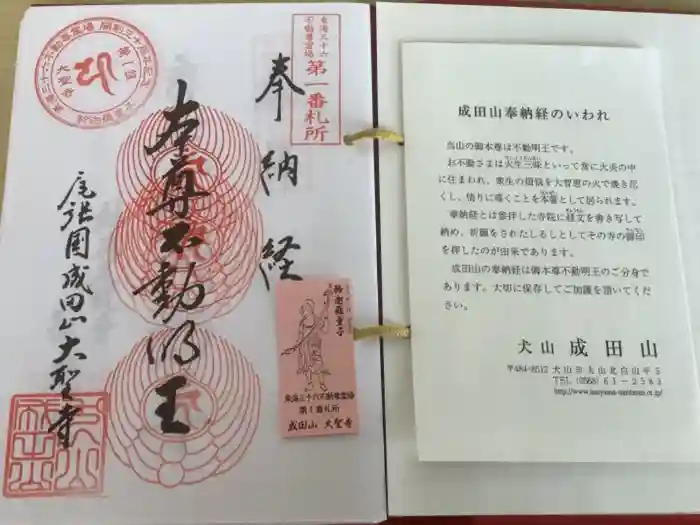 奉納経
本尊不動明王
尾張国成田山大聖寺
東海三十六不動尊霊場
第一番札所
東海三十六不動尊霊場 開創三十周年記念
第1番
大聖寺
東海三十六不動霊場
第1番札所
成田山 大聖寺
成田山奉納経のいわれ
当山の御本尊は不動明王です。
お不動さまは火生三昧といって常に大炎の中
に住まわれ、衆生の煩悩を大智恵の火で焼き尽
くし、悟りに導くことを本誓として居られます。
奉納経とは参拝した寺院に経文を書き写して
納め、祈願をされたしるしとしてその寺の御印
を押したのが由来であります。
成田山の奉納経は御本尊不動明王のご分身で
あります。大切に保存してご加護を頂いてくだ
さい。
犬山 成田山
〒484-8512 犬山市犬山北白山平5
TEL (0568) 61-2583